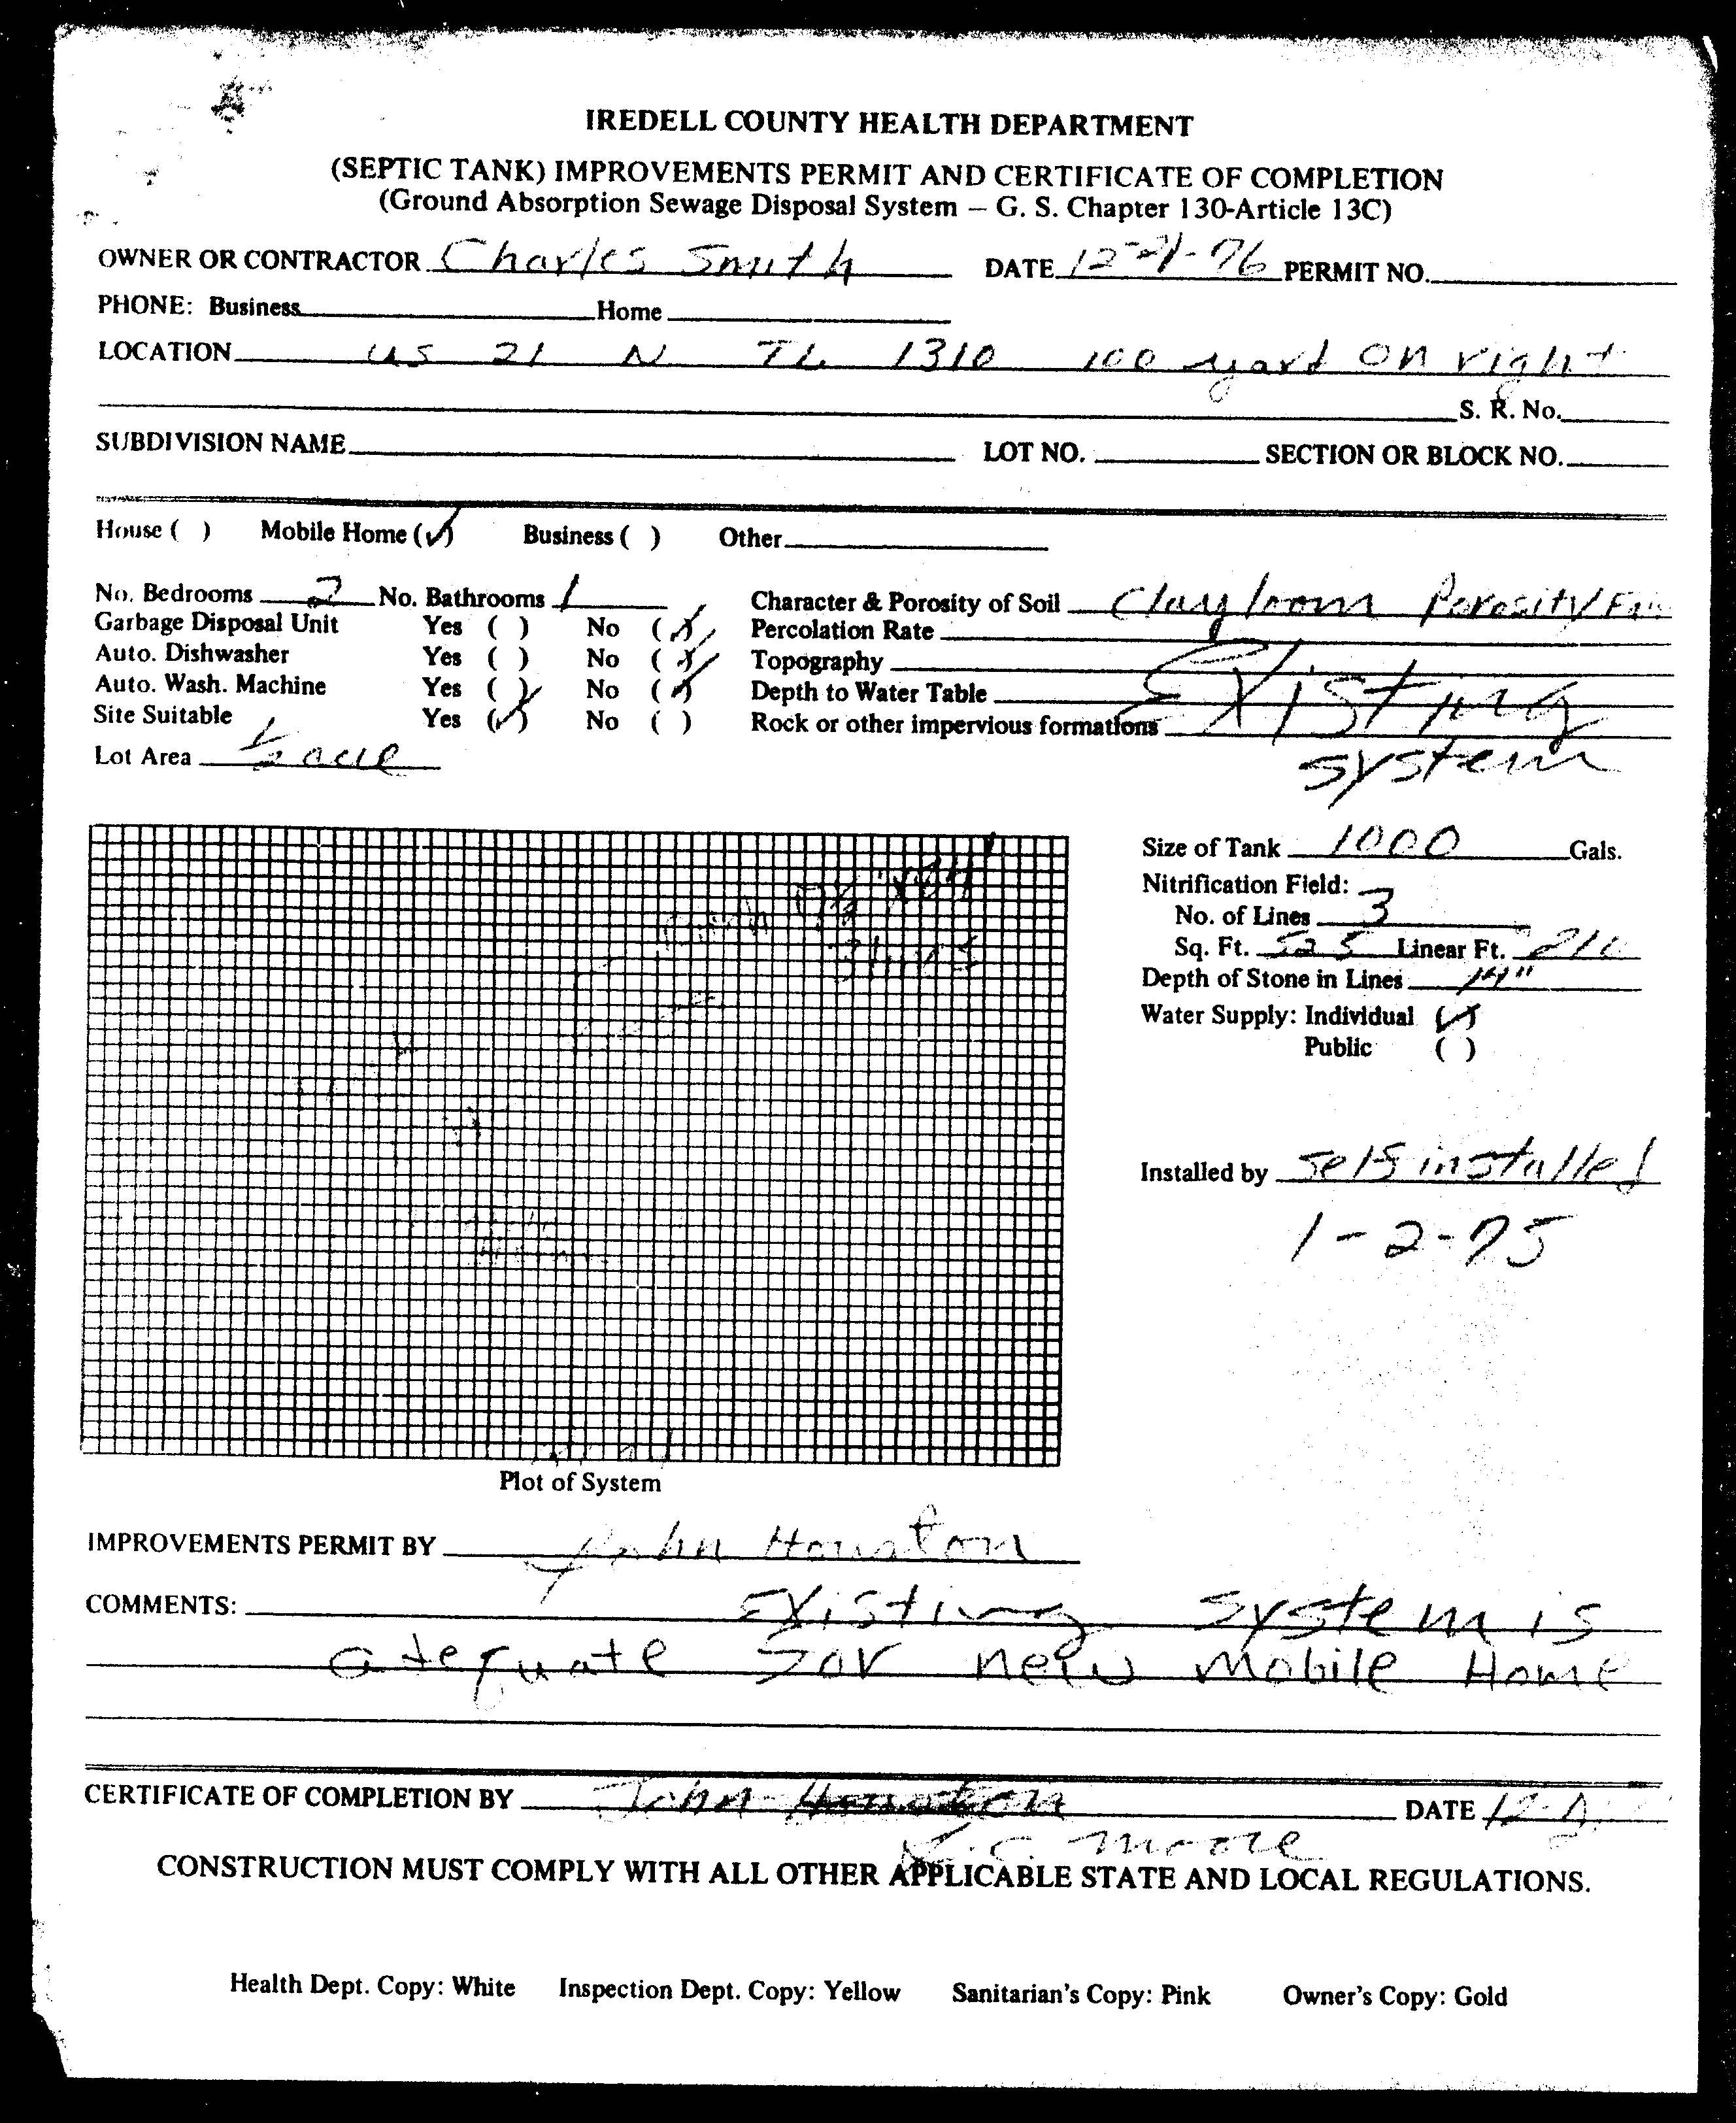 IREDELL COUNTY HEALTH DEPARTMENT
(SEPTIC TANK) IMPROVEMENTS PERMIT AND CERTIFICATE OF COMPLETION
(Ground Absorption Sewage Disposal System – G. S. Chapter 130-Article 13C)
OWNER OR CONTRACTOR Charles Smith DATE 12-21-76 PERMIT NO.
PHONE: Business Home
LOCATION US 21 N TL 1310 100 yard on right
S. R. No.
SUBDIVISION NAME LOT NO. SECTION OR BLOCK NO.
House ( ) Mobile Home (✓) Business ( ) Other
No. Bedrooms 2 No. Bathrooms 1 Character & Porosity of Soil Clay loam Porosity
Garbage Disposal Unit Yes ( ) No (✓) Percolation Rate
Auto. Dishwasher Yes ( ) No (✓) Topography
Auto. Wash. Machine Yes ( ) No (✓) Depth to Water Table Existing
Site Suitable Yes (✓) No ( ) Rock or other impervious formations
system
Lot Area 1/2 acre
Size of Tank 1000 Gals.
Nitrification Field:
No. of Lines 3
Sq. Ft. 525 Linear Ft. 210
Depth of Stone in Lines 14"
Water Supply: Individual (✓)
Public ( )
Installed by self installed
1-2-75
Plot of System
IMPROVEMENTS PERMIT BY John Houston
COMMENTS: Existing system is
adequate for new Mobile Home
CERTIFICATE OF COMPLETION BY John Houston DATE
Moore
CONSTRUCTION MUST COMPLY WITH ALL OTHER APPLICABLE STATE AND LOCAL REGULATIONS.
Health Dept. Copy: White Inspection Dept. Copy: Yellow Sanitarian's Copy: Pink Owner's Copy: Gold